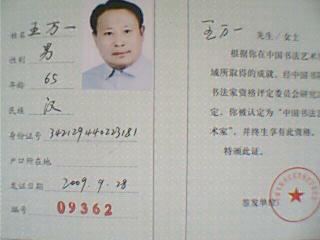 姓名 王万一
性别 男
年龄 65
民族 汉
身份证号 342129440223181
户口所在地
发证日期 2009.9.28
编号 09362
王万一 先生/女士
根据你在中国书法艺术
域所取得的成就,经中国
书法家资格评定委员会研究
定,你被认定为“中国书法
术家”,并终生享有此资格。
特颁此证。
签发单位: